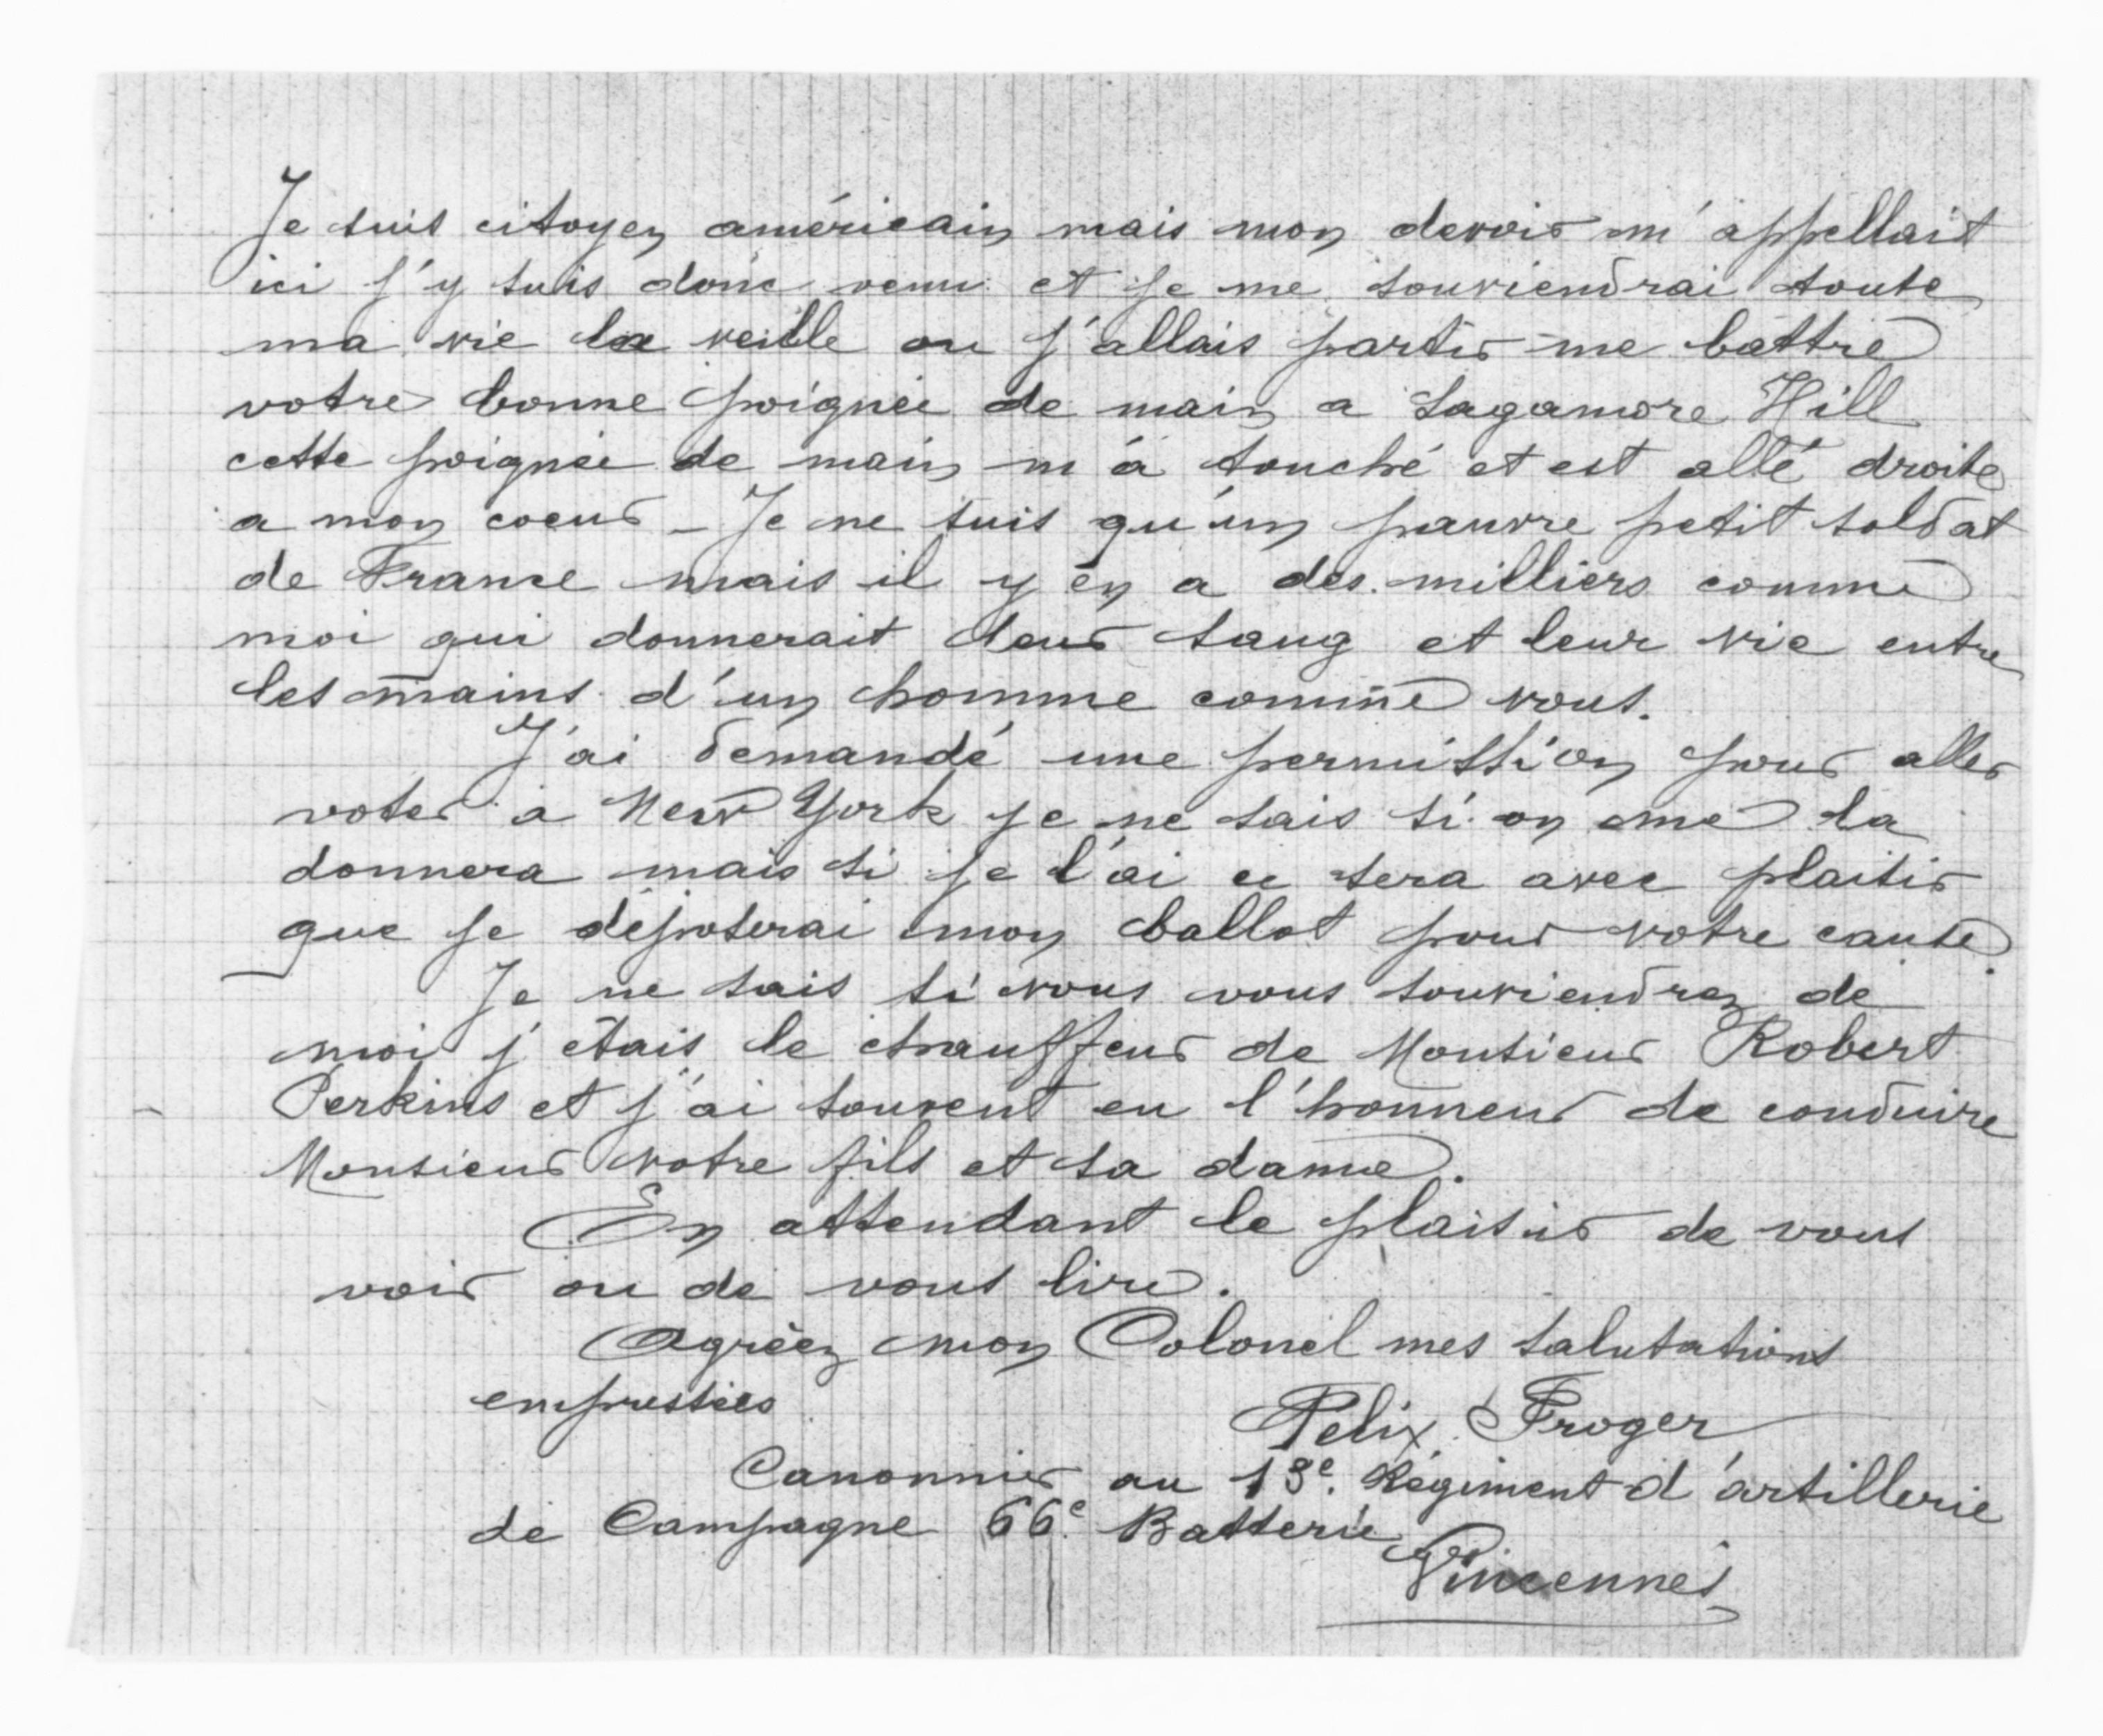 Je suis citoyen américain mais mon devoir m'appellait
ici j'y suis donc venu et je me souviendrai toute
ma vie la veille ou j'allais partir me battre
votre bonne poignée de main a Sagamore Hill
cette poignée de main m'a touché et est allé droite
a mon coeur - Je ne suis qu'un pauvre petit soldat
de France mais il y en a des milliers comme
moi qui donnerait leur sang et leur vie entre
les mains d'un homme comme vous.
J'ai demandé une permission pour aller
voter a New York je ne sais si on me la
donnera mais si je l'ai ce sera avec plaisir
que je déposerai mon ballot pour votre cause.
Je ne sais si vous vous souviendrez de
moi j'étais le chauffeur de Monsieur Robert
Perkins et j'ai souvent eu l'honneur de conduire
Monsieur votre fils et sa dame.
En attendant le plaisir de vous
voir ou de vous lire.
Agréez mon Colonel mes salutations
empressées
Felix Froger
Canonnier au 13e. Régiment d'artillerie
de Campagne 66e. Batterie
Vincennes